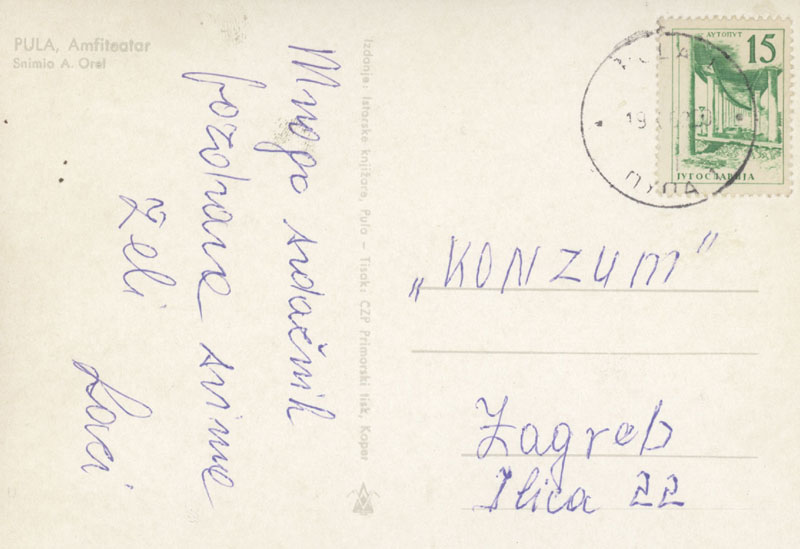 PULA, Amfiteatar
Snimio A. Orel
Mnogo srdačnih
pozdrava svima
želi
Laci
Izdanje: Istarske knjižare, Pula — Tisak: ČZP Primorski tisk, Koper
АУТОПУТ
15
ЈУГОСЛАВИЈА
PULA
ПУЛА
„KONZUM"
Zagreb
Ilica 22